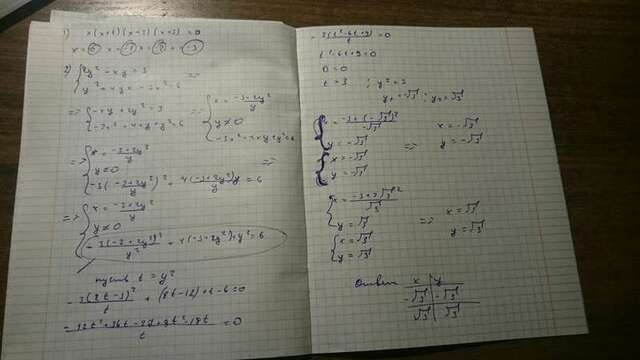 1) x(x+1)(x-7)(x+3) = 0
2) { 2y² - xy = 3
y² + 4xy - 3x² = 6
=> { -xy + 2y² = 3
-3x² + 4xy + y² = 6
=> { x = (-3+2y²)/y
y ≠ 0
-3x² + 4xy + y² = 6
=> { x = (-3+2y²)/y
y ≠ 0
-3((-3+2y²)/y)² + 4((-3+2y²)/y)y = 6
=> { x = (-3+2y²)/y
y ≠ 0
-3(-3+2y²)²/y² + 4(-3+2y²) + y² = 6
пусть t = y²
-3(2t-3)²/t + (8t-12) + t - 6 = 0
(-12t² + 36t - 27 + 9t² - 18t)/t = 0
-3(t²-6t+9)/t = 0
t² - 6t + 9 = 0
D = 0
t = 3 ; y² = 3
y₁ = -√3 ; y₂ = √3
y = -√3
{ x = -√3
y = -√3
=> x = -√3
y = -√3
y = √3
{ x = √3
y = √3
=> x = √3
y = √3
Ответ
x | y
-√3 | -√3
√3 | √3